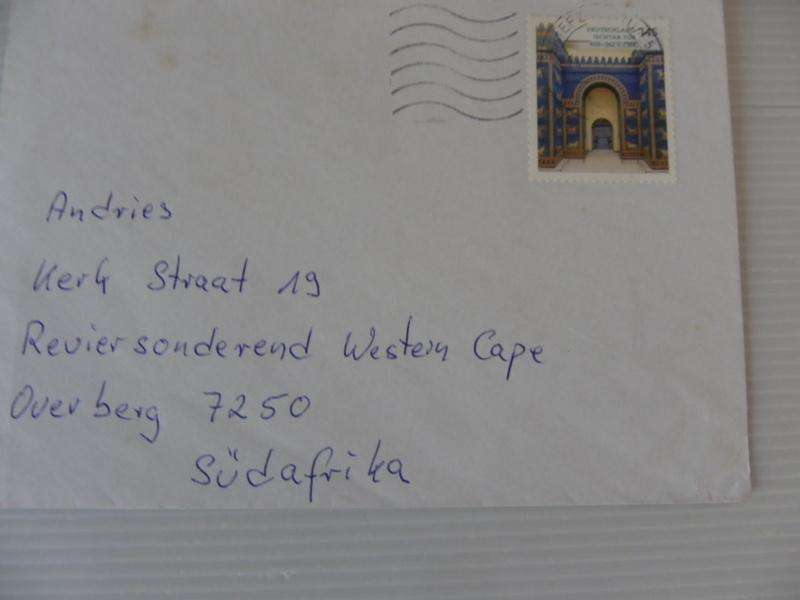 DEUTSCHLAND
ISCHTAR TOR
145
Andries
Kerk Straat 19
Reviersonderend Western Cape
Overberg 7250
Südafrika